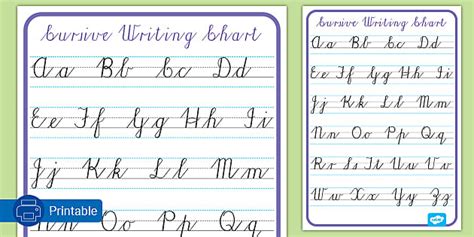 Cursive Writing Chart
Aa Bb Cc Dd
Ee Ff Gg Hh Ii
Jj Kk Ll Mm
Nn Oo Pp Qq
Printable
Cursive Writing Chart
Aa Bb Cc Dd
Ee Ff Gg Hh Ii
Jj Kk Ll Mm
Nn Oo Pp Qq
Rr Ss Tt Uu Vv
Ww Xx Yy Zz